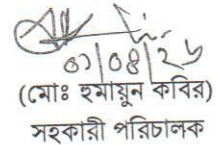 ০১/০৪/২৬
(মোঃ হুমায়ুন কবির)
সহকারী পরিচালক